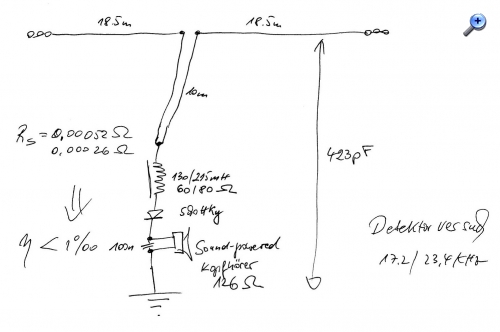 18.5m
18.5m
10m
Rs = 0,00052 Ω
0,00026 Ω
423pF
130/215mH
60/80 Ω
η < 1‰
100n
Sound-powered
Kopfhörer
126 Ω
Detektorversuch
17.2 / 23,4 kHz